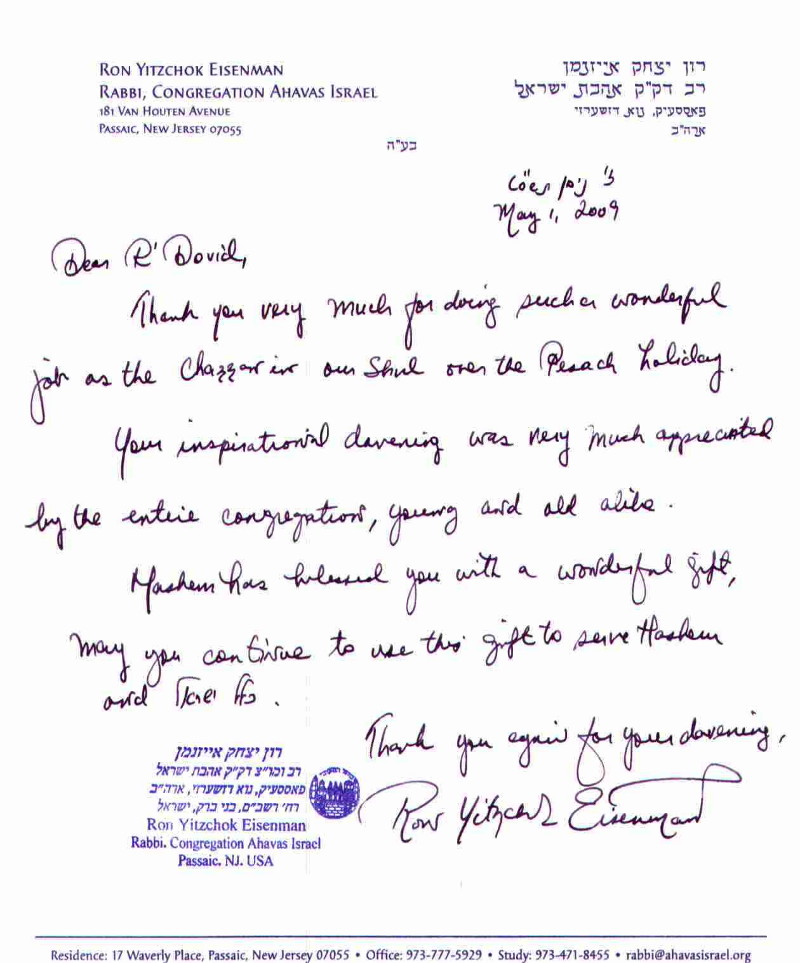 RON YITZCHOK EISENMAN
RABBI, CONGREGATION AHAVAS ISRAEL
181 VAN HOUTEN AVENUE
PASSAIC, NEW JERSEY 07055
רון יצחק אייזנמן
רב דק"ק אהבת ישראל
פאססעיק, נוא דזשערזי
ארה"ב
בע"ה
May 1, 2009
Dear R' Dovid,
Thank you very much for doing such a wonderful
job as the Chazzan in our Shul over the Pesach holiday.
Your inspirational davening was very much appreciated
by the entire congregation, young and old alike.
Hashem has blessed you with a wonderful gift,
may you continue to use this gift to serve Hashem
and כלל ישראל.
Thank you again for your davening,
Ron Yitzchok Eisenman
רון יצחק אייזנמן
רב ומו"צ דק"ק אהבת ישראל
פאססעיק, נוא דזשערזי, ארה"ב
רח' רשב"ם, בני ברק, ישראל
Ron Yitzchok Eisenman
Rabbi. Congregation Ahavas Israel
Passaic. NJ. USA
Residence: 17 Waverly Place, Passaic, New Jersey 07055 • Office: 973-777-5929 • Study: 973-471-8455 • rabbi@ahavasisrael.org